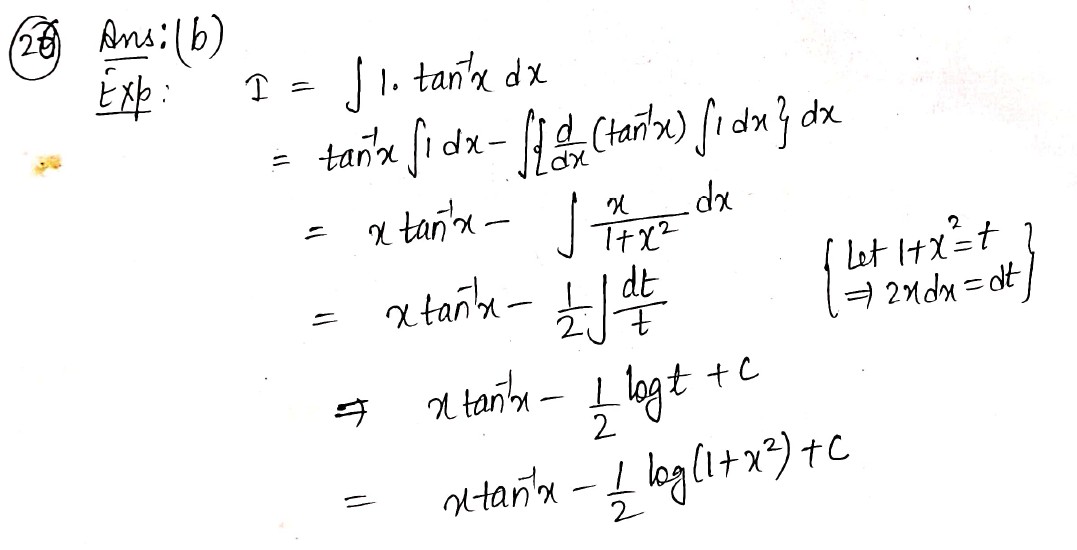 26 Ans: (b)
Exp: I = ∫ 1. tan⁻¹x dx
= tan⁻¹x ∫1 dx - ∫{d/dx (tan⁻¹x) ∫1 dx} dx
= x tan⁻¹x - ∫ x/(1+x²) dx
{Let 1+x² = t
⇒ 2x dx = dt}
= x tan⁻¹x - 1/2 ∫ dt/t
⇒ x tan⁻¹x - 1/2 log t + C
= x tan⁻¹x - 1/2 log(1+x²) + C